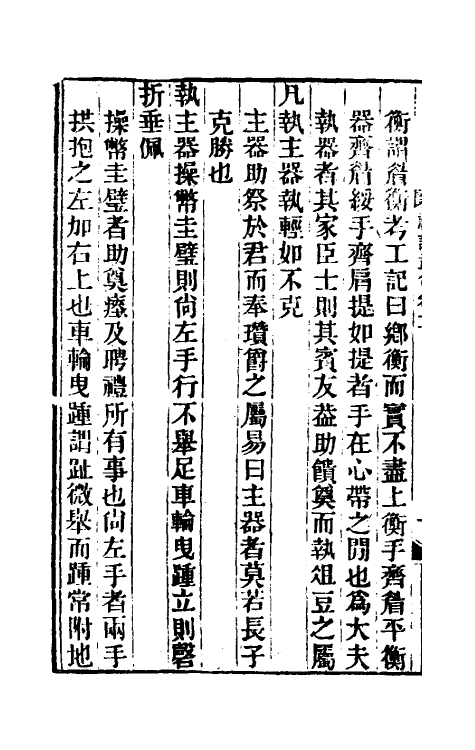 衡謂眉衡考工記曰鄉衡而實不盡上衡手齊眉平衡
器齊眉綏手齊肩提如提者手在心帶之閒也爲大夫
執器者其家臣士則其賓友葢助饋奠而執俎豆之屬
凡執主器執輕如不克
主器助祭於君而奉瓚爵之屬易曰主器者莫若長子
克勝也
執主器操幣圭璧則尙左手行不舉足車輪曳踵立則磬
折垂佩
操幣圭璧者助奠瘞及聘禮所有事也尙左手者兩手
拱抱之左加右上也車輪曳踵謂趾微舉而踵常附地